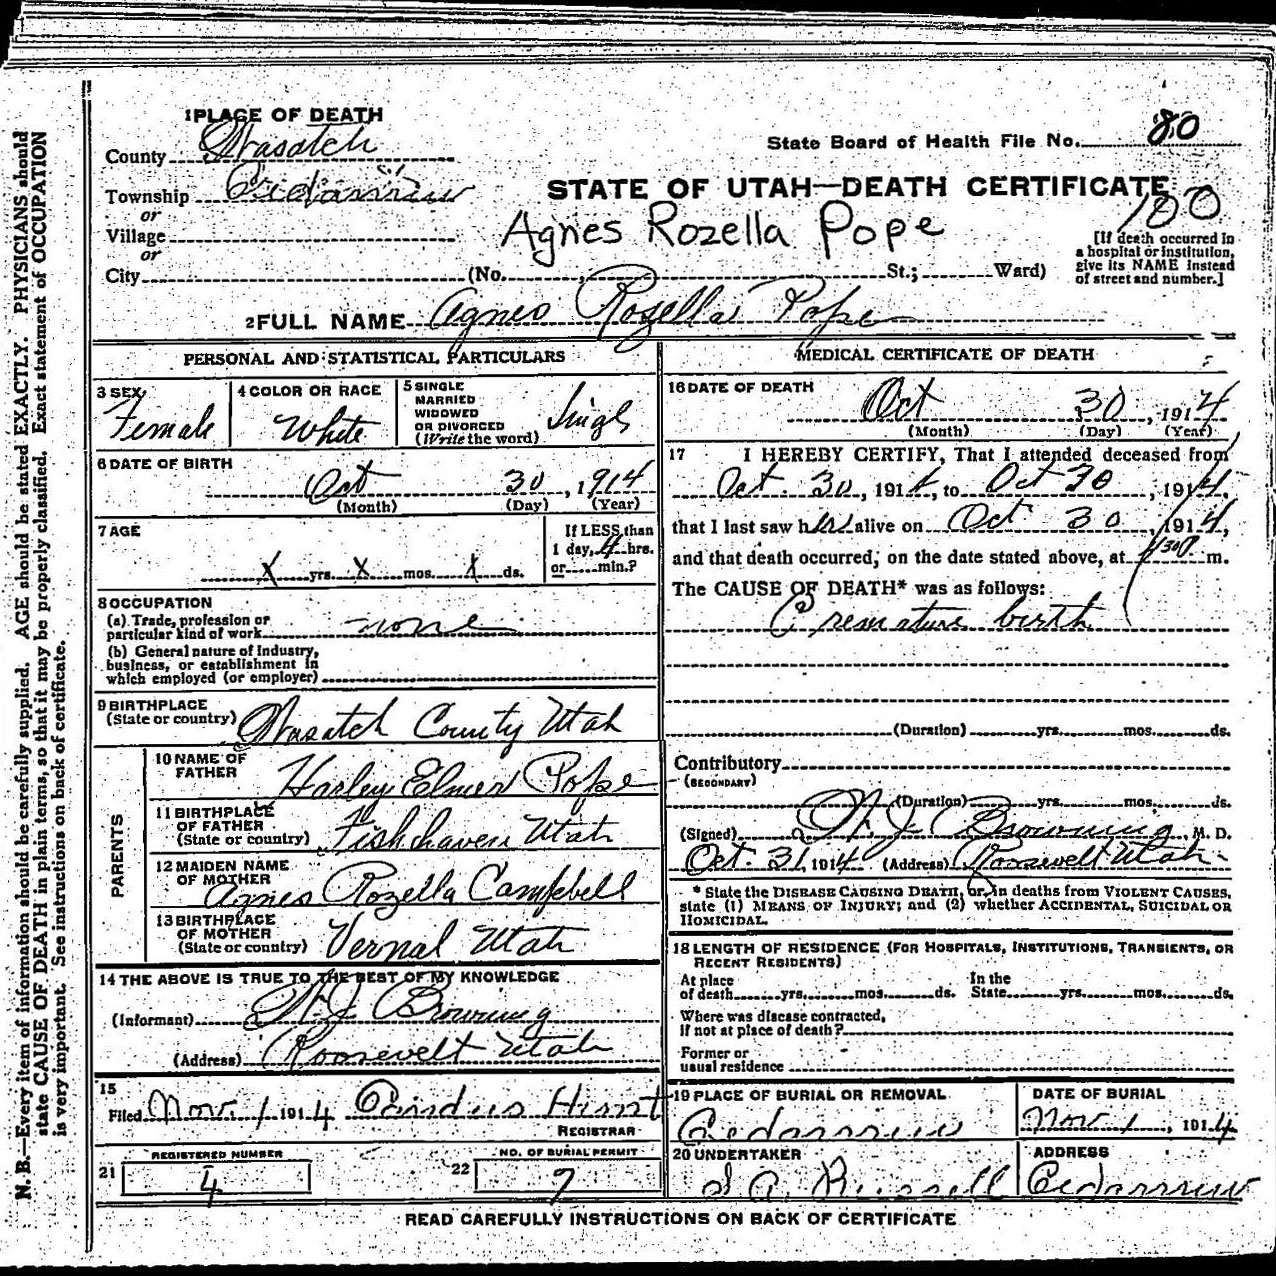 1 PLACE OF DEATH
County Wasatch
State Board of Health File No. 80
Township Cedarview
STATE OF UTAH—DEATH CERTIFICATE
100
or
Village
or
Agnes Rozella Pope
[If death occurred in
a hospital or institution,
give its NAME instead
of street and number.]
City (No. St.; Ward)
2 FULL NAME Agnes Rozella Pope
PERSONAL AND STATISTICAL PARTICULARS
3 SEX
Female
4 COLOR OR RACE
White
5 SINGLE
MARRIED
WIDOWED
OR DIVORCED
(Write the word)
Singl
6 DATE OF BIRTH
Oct 30, 1914
(Month) (Day) (Year)
7 AGE
X yrs. X mos. X ds.
If LESS than
1 day, 4 hrs.
or min.?
8 OCCUPATION
(a) Trade, profession or
particular kind of work none
(b) General nature of Industry,
business, or establishment in
which employed (or employer)
9 BIRTHPLACE
(State or country) Wasatch County Utah
PARENTS
10 NAME OF
FATHER
Harley Elmer Pope
11 BIRTHPLACE
OF FATHER
(State or country) Fishhaven Utah
12 MAIDEN NAME
OF MOTHER
Agnes Rozella Campbell
13 BIRTHPLACE
OF MOTHER
(State or country) Vernal Utah
14 THE ABOVE IS TRUE TO THE BEST OF MY KNOWLEDGE
(Informant) W. J. Browning
(Address) Roosevelt Utah
15
Filed Nov. 1 1914 Candus Hunt
REGISTRAR
REGISTERED NUMBER
21 4
NO. OF BURIAL PERMIT
22 7
MEDICAL CERTIFICATE OF DEATH
16 DATE OF DEATH
Oct 30, 1914
(Month) (Day) (Year)
17 I HEREBY CERTIFY, That I attended deceased from
Oct. 30, 1914, to Oct 30, 1914,
that I last saw her alive on Oct 30 1914,
and that death occurred, on the date stated above, at m.
The CAUSE OF DEATH* was as follows:
Premature birth
(Duration) yrs. mos. ds.
Contributory
(SECONDARY)
(Duration) yrs. mos. ds.
(Signed) W. J. Browning, M. D.
Oct. 31, 1914 (Address) Roosevelt Utah
* State the DISEASE CAUSING DEATH, or, in deaths from VIOLENT CAUSES,
state (1) MEANS OF INJURY; and (2) whether ACCIDENTAL, SUICIDAL OR
HOMICIDAL.
18 LENGTH OF RESIDENCE (FOR HOSPITALS, INSTITUTIONS, TRANSIENTS, OR
RECENT RESIDENTS)
At place
of death yrs. mos. ds.
In the
State yrs. mos. ds.
Where was disease contracted,
if not at place of death?
Former or
usual residence
19 PLACE OF BURIAL OR REMOVAL
Cedarview
DATE OF BURIAL
Nov 1, 1914
20 UNDERTAKER
Russell
ADDRESS
Cedarview
READ CAREFULLY INSTRUCTIONS ON BACK OF CERTIFICATE
N. B.—Every item of information should be carefully supplied. AGE should be stated EXACTLY. PHYSICIANS should
state CAUSE OF DEATH in plain terms, so that it may be properly classified. Exact statement of OCCUPATION
is very important. See instructions on back of certificate.